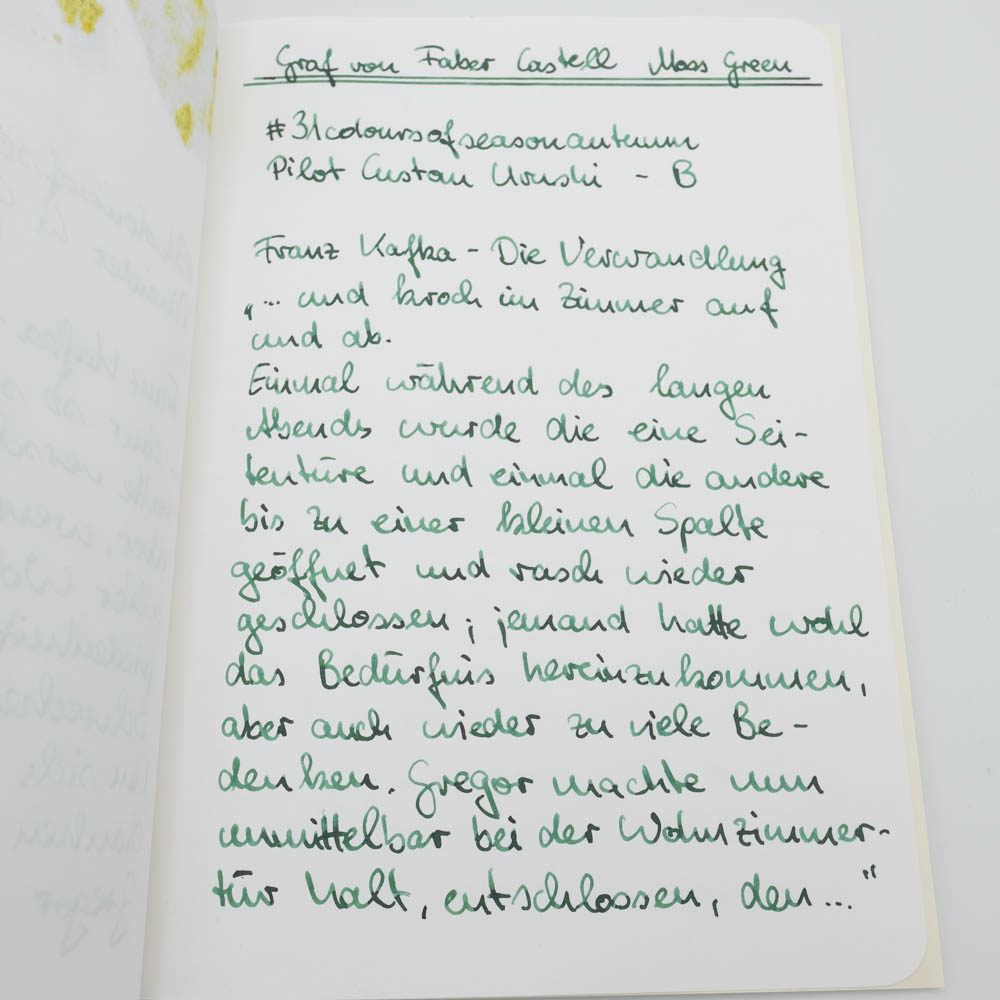 Graf von Faber Castell Moss Green
#31coloursofseasonautumn
Pilot Custom Urushi - B
Franz Kafka - Die Verwandlung
„... und kroch im Zimmer auf
und ab.
Einmal während des langen
Abends wurde die eine Sei-
tentüre und einmal die andere
bis zu einer kleinen Spalte
geöffnet und rasch wieder
geschlossen; jemand hatte wohl
das Bedürfnis hereinzukommen,
aber auch wieder zu viele Be-
denken. Gregor machte nun
unmittelbar bei der Wohnzimmer-
tür halt, entschlossen, den ..."